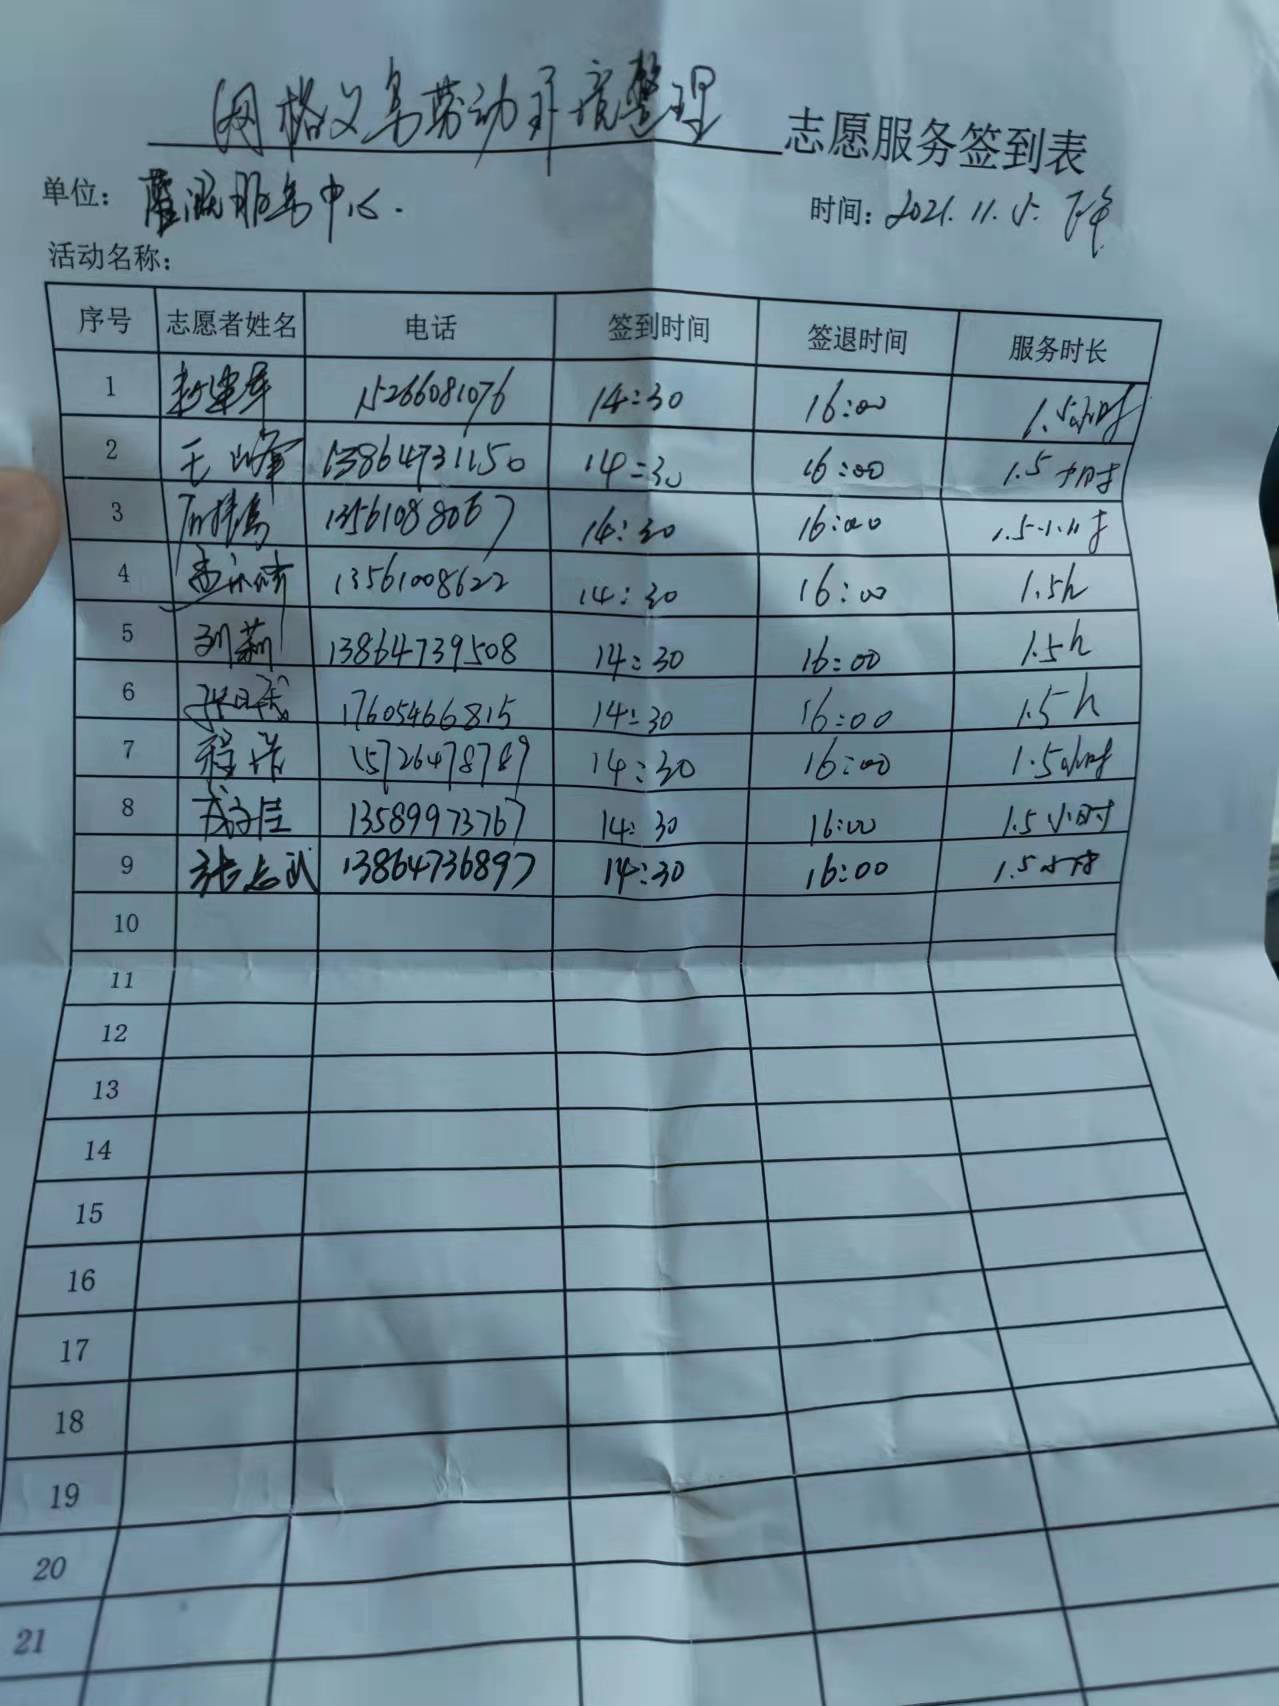 网格义务劳动环境整理 志愿服务签到表
单位： 服务中心.
时间：2021.11.5. 下午
活动名称：
序号 志愿者姓名 电话 签到时间 签退时间 服务时长
1 15266081076 14:30 16:00 1.5小时
2 王 13864731150 14:30 16:00 1.5小时
3 13561088067 14:30 16:00 1.5小时
4 13561008622 14:30 16:00 1.5h
5 刘莉 13864739508 14:30 16:00 1.5h
6 17605466815 14:30 16:00 1.5h
7 程浩 14:30 16:00 1.5小时
8 13589973767 14:30 16:00 1.5小时
9 张志武 13864736897 14:30 16:00 1.5小时
10
11
12
13
14
15
16
17
18
19
20
21